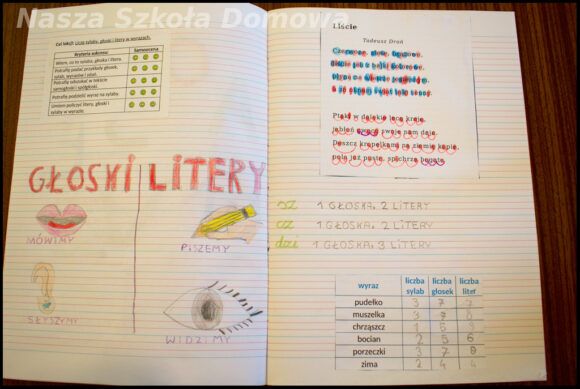 Nasza Szkoła Domowa
Cel lekcji: Liczę sylaby, głoski i litery w wyrazach.
Kryteria sukcesu: Samoocena
Wiem, co to sylaba, głoska i litera.
Potrafię podać przykłady głosek, sylab, wyrazów i zdań.
Potrafię odszukać w tekście samogłoski i spółgłoski.
Potrafię podzielić wyraz na sylaby.
Umiem policzyć litery, głoski i sylaby w wyrazie.
GŁOSKI LITERY
MÓWIMY
PISZEMY
SŁYSZYMY
WIDZIMY
Liście
Tadeusz
Czerwone, złote,
Ptaki w dalekie lecą kraje,
jabłoń owoce swoje nam daje.
Deszcz kropelkami na ziemię kapie,
pola już puste, spichrze bogate.
sz 1 GŁOSKA, 2 LITERY
cz 1 GŁOSKA, 2 LITERY
dzi 1 GŁOSKA, 3 LITERY
wyraz liczba sylab liczba głosek liczba liter
pudełko 3 7
muszelka 3 7 8
chrząszcz 1 5 9
bocian 2 5 6
porzeczki 3 7
zima 2 4 4